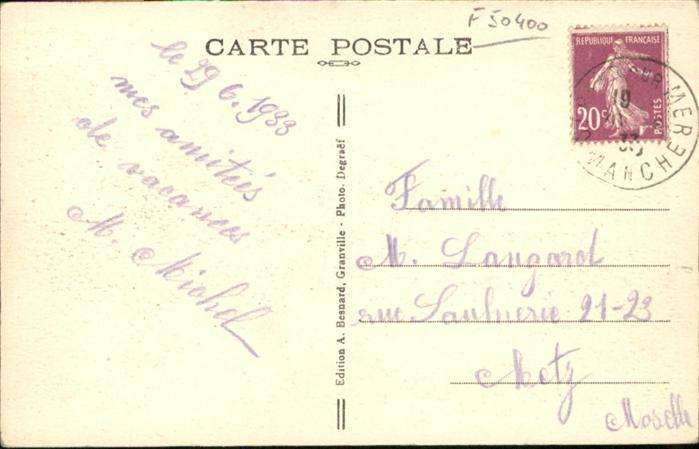 F 50400
CARTE POSTALE
REPUBLIQUE FRANÇAISE
20c
POSTES
SUR MER
19
33
MANCHE
le 29 6. 1933
mes amitiés
de vacances
M. Michel
Edition A. Besnard, Granville - Photo. Degraëf
Famille
M. Langard
rue Saulnerie 21-23
Metz
Moselle